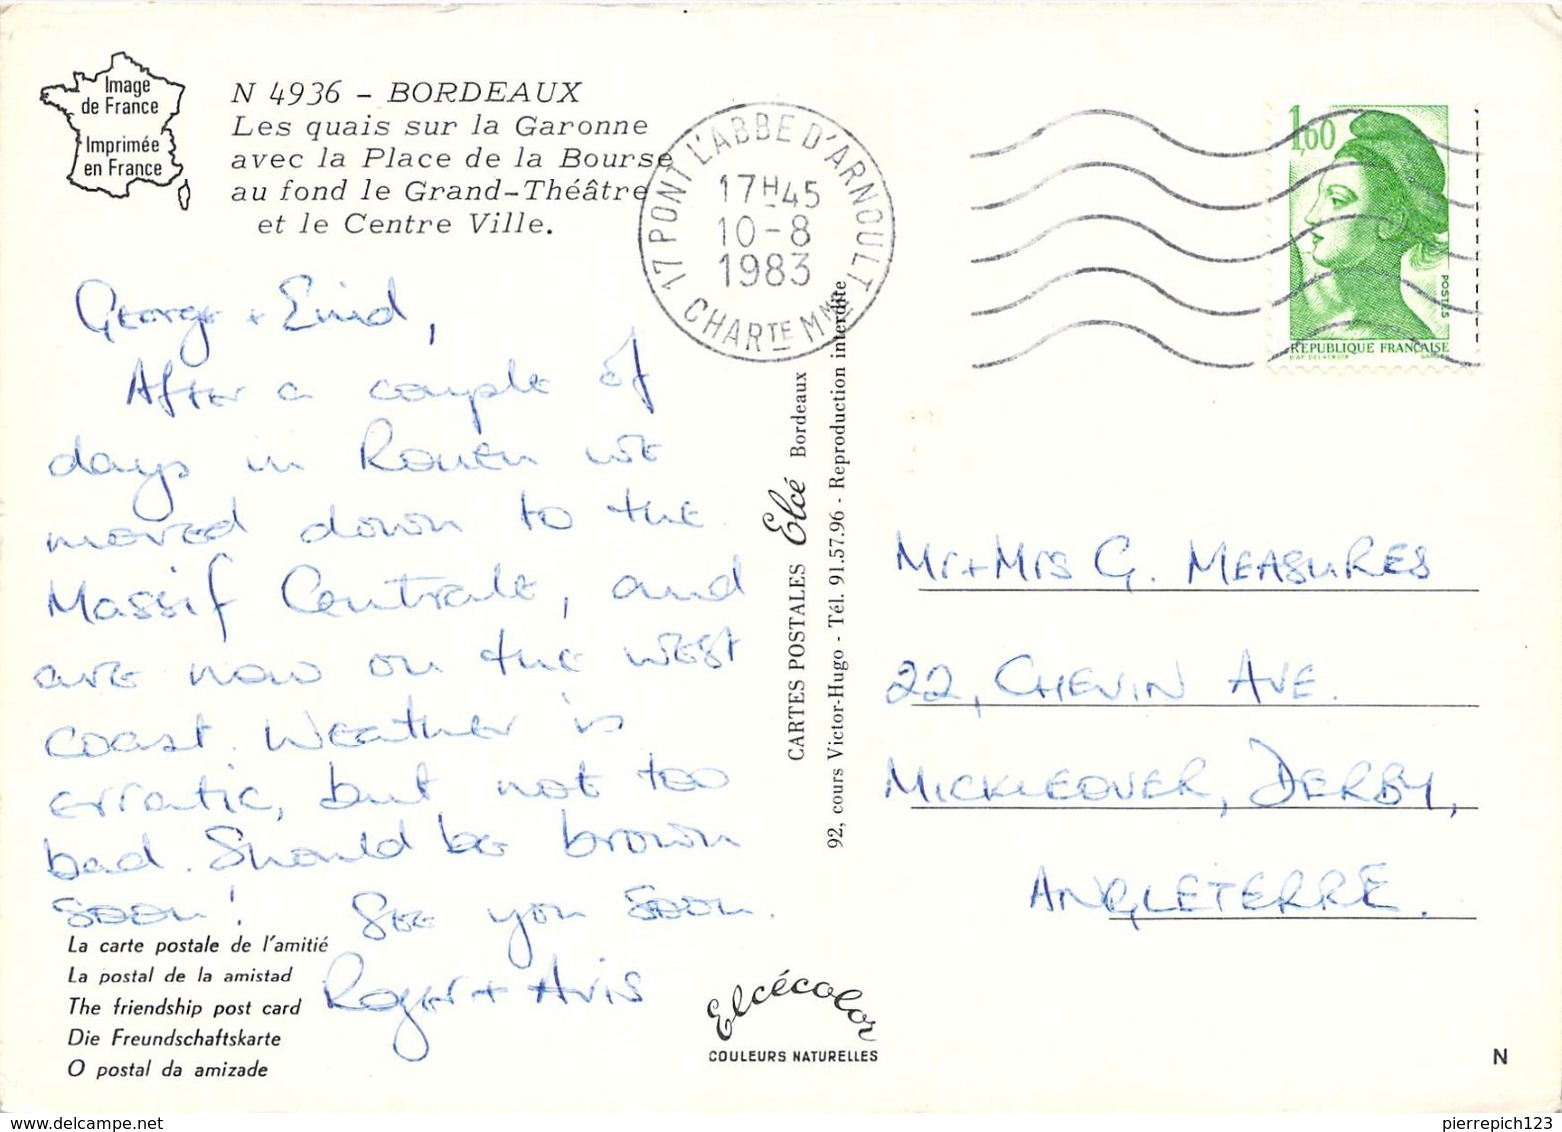 Image
de France
Imprimée
en France
N 4936 - BORDEAUX
Les quais sur la Garonne
avec la Place de la Bourse
au fond le Grand-Théâtre
et le Centre Ville.
17 PONT L'ABBE D'ARNOULT
17H45
10-8
1983
CHARTE MME
1,60
POSTES
REPUBLIQUE FRANÇAISE
D'AP. DELACROIX
George + Enid,
After a couple of
days in Rouen we
moved down to the
Massif Centrale, and
are now on the west
coast. Weather is
erratic, but not too
bad. Should be brown
soon! See you soon.
Roger + Avis
La carte postale de l'amitié
La postal de la amistad
The friendship post card
Die Freundschaftskarte
O postal da amizade
CARTES POSTALES Elcé Bordeaux
92, cours Victor-Hugo - Tél. 91.57.96 - Reproduction interdite
Elcécolor
COULEURS NATURELLES
Mr + Mrs G. MEASURES
22, CHEVIN AVE.
MICKLEOVER, DERBY,
ANGLETERRE.
N
pierrepich123